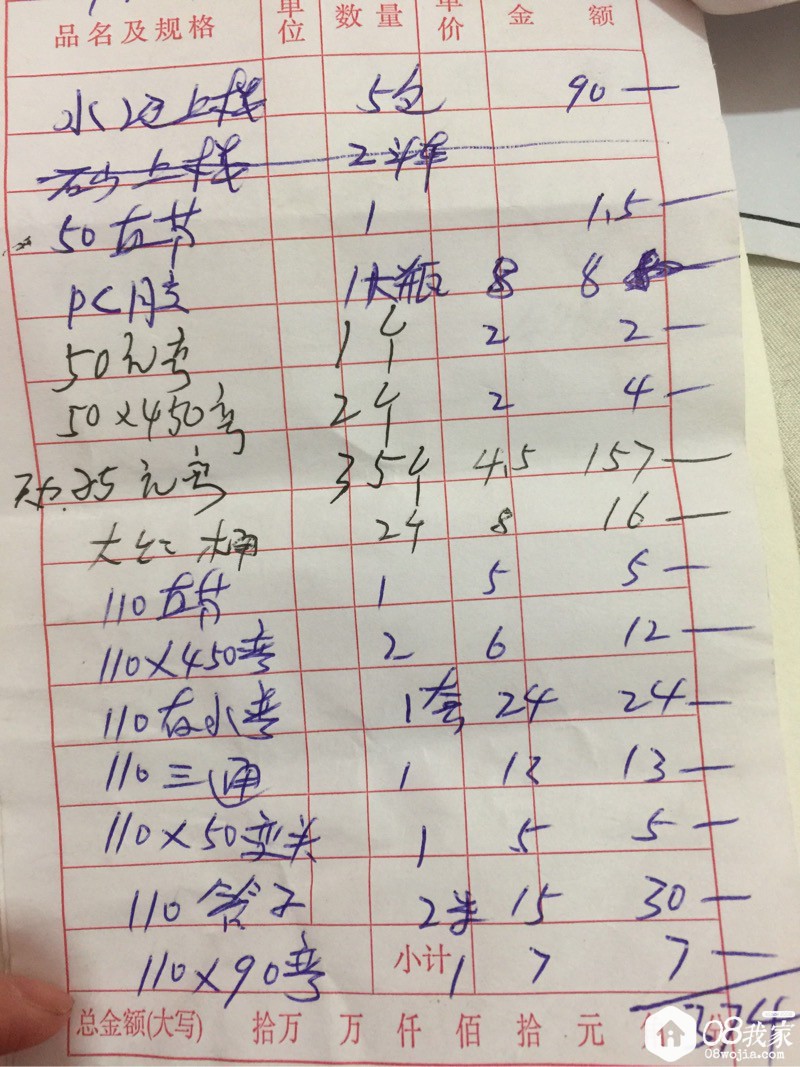 品名及规格 单位 数量 单价 金额
水泥上楼 5包 90—
上楼 2
50直 1 1.5—
PC胶 1大瓶 8 8—
50 弯 1个 2 2—
50×450弯 2个 2 4—
25 弯 35个 4.5 157—
大 2个 8 16—
110直 1 5 5—
110×450弯 2 6 12—
110存水弯 1套 24 24—
110三通 1 13 13—
110×50变头 1 5 5—
110管子 2米 15 30—
110×90弯 小计 1 7 7—
总金额(大写) 拾万 万 仟 佰 拾 元
08我家
08wojia.com